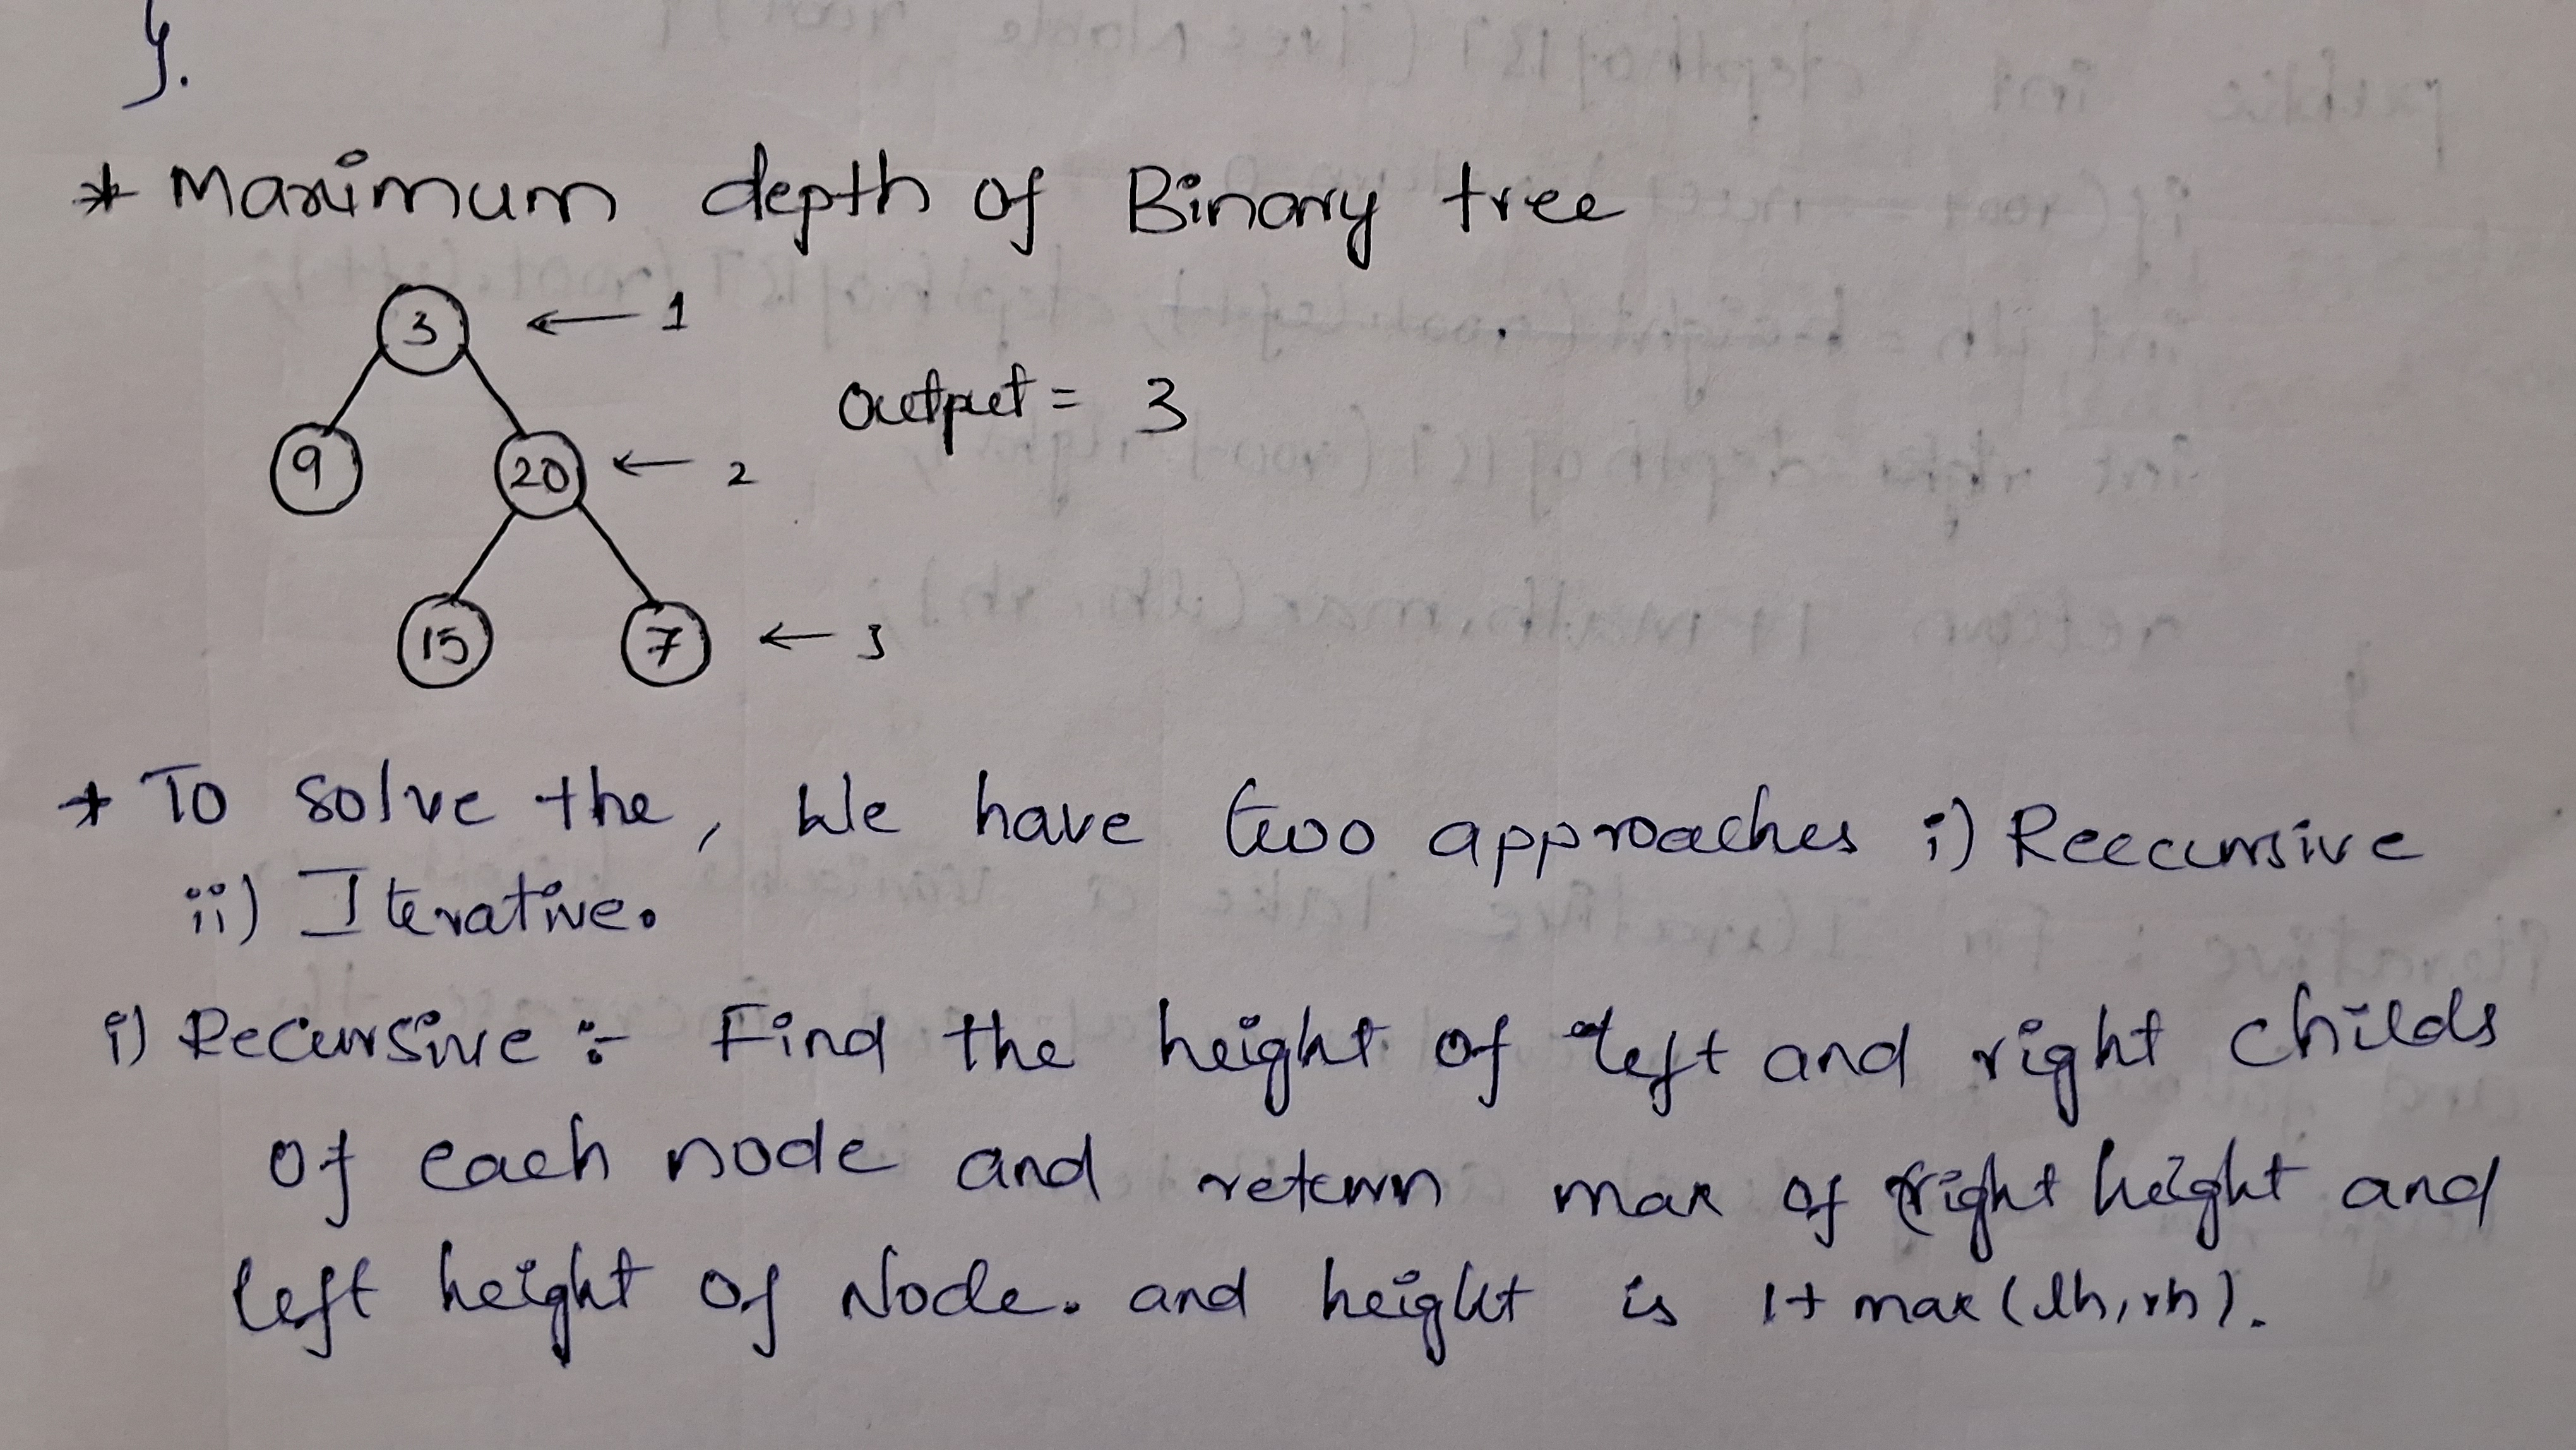 }.
* Maximum depth of Binary tree
3 ← 1
9 20 ← 2
output = 3
15 7 ← 3
* To solve the, We have two approaches i) Recursive
ii) Iterative.
i) Recursive :- Find the height of left and right childs
of each node and return max of right height and
left height of Node. and height is 1+ max(lh,rh).